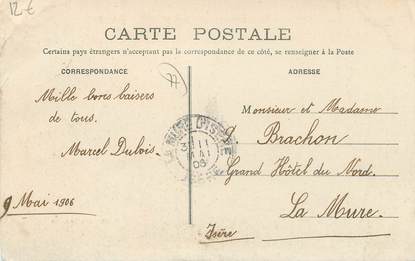 12 €
CARTE POSTALE
Certains pays étrangers n'acceptant pas la correspondance de ce côté, se renseigner à la Poste
CORRESPONDANCE
Mille bons baisers
de tous.
Marcel Dubois.
9 Mai 1906
77
LA MURE ISÈRE
ADRESSE
Monsieur et Madame
J. Brachon
Grand Hôtel du Nord.
La Mure.
Isère